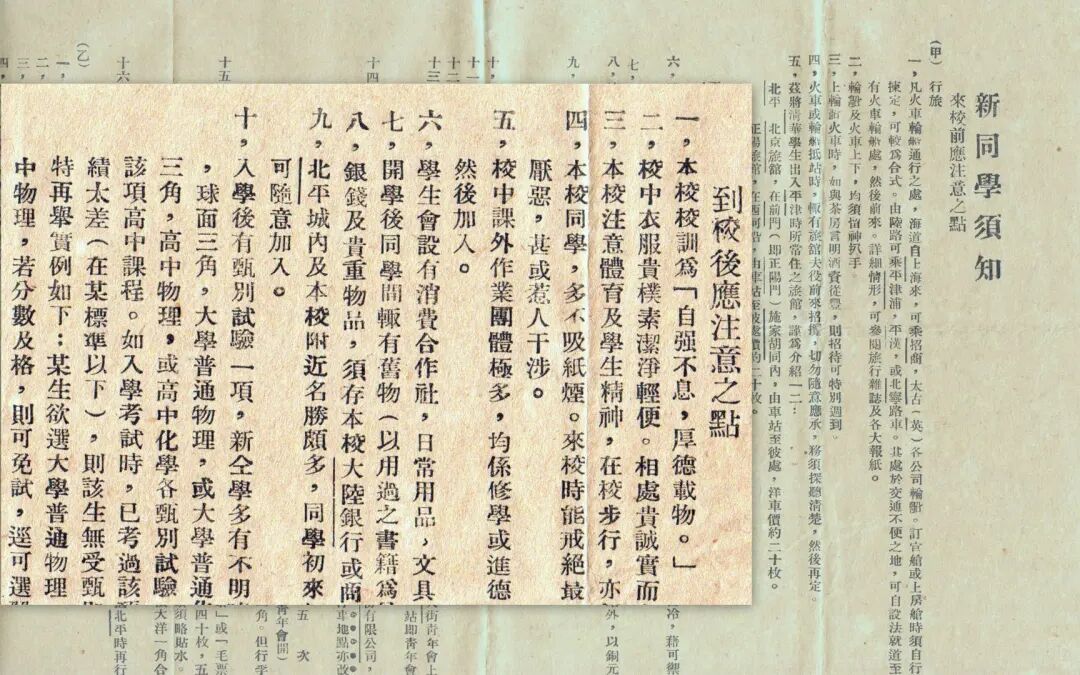 新同學須知
來校前應注意之點
(甲) 行旅
一，凡火車輪船通行之處，海道自上海來，可乘招商，太古(英)各公司輪船。訂官艙或上房艙時須自行
揀定，可較爲合式。由陸路可乘平津浦，平漢，或北寧路車。其處於交通不便之地，可自設法就道至
有火車輪船處，然後前來。詳細情形，可參閱旅行雜誌及各大報紙。
二，輪船及火車上下，均須留神扒手。
三，上輪船火車時，如與茶房言明酒資從豐，則招待可特別週到。
四，火車或輪船抵站時，輒有旅舘夫役前來招攬，切勿隨意應承，務須探聽清楚，然後再定。
五，茲將清華學生出入平津時所常住之旅館，謹爲介紹一二：
北平 北京旅舘，在前門(即正陽門)施家胡同內，由車站至彼處，洋車價約二十枚。
正陽旅館，在西河沿，由車站至彼處價約二十枚。
六，
七，
八，
九，
十，
十一
十二
十三
十四
十五
十六
(乙)
一，
二，
三，
四，
到校後應注意之點
一，本校校訓爲「自强不息，厚德載物。」
二，校中衣服貴樸素潔淨輕便。相處貴誠實而
三，本校注意體育及學生精神，在校步行，亦
四，本校同學，多不吸紙煙。來校時能戒絕最
厭惡，甚或惹人干涉。
五，校中課外作業團體極多，均係修學或進德
然後加入。
六，學生會設有消費合作社，日常用品，文具
七，開學後同學間輒有舊物(以用過之書籍爲
八，銀錢及貴重物品，須存本校大陸銀行或商
九，北平城內及本校附近名勝頗多，同學初來
可隨意加入。
十，入學後有甄別試驗一項，新仝學多有不明
，球面三角，大學普通物理，或大學普通
三角，高中物理，或高中化學各甄別試驗
該項高中課程。如入學考試時，已考過該
績太差(在某標準以下)，則該生無受甄
特再舉實例如下：某生欲選大學普通物理
中物理，若分數及格，則可免試，逕可選
冷，藉可禦
外，以銅元
街青年會上
站即青年會
有限公司，
車地點亦改
五 次
青年會開)
角。但行李
」或「毛票
四十枚，五
須略貼水。
大洋一角合
北平時再行